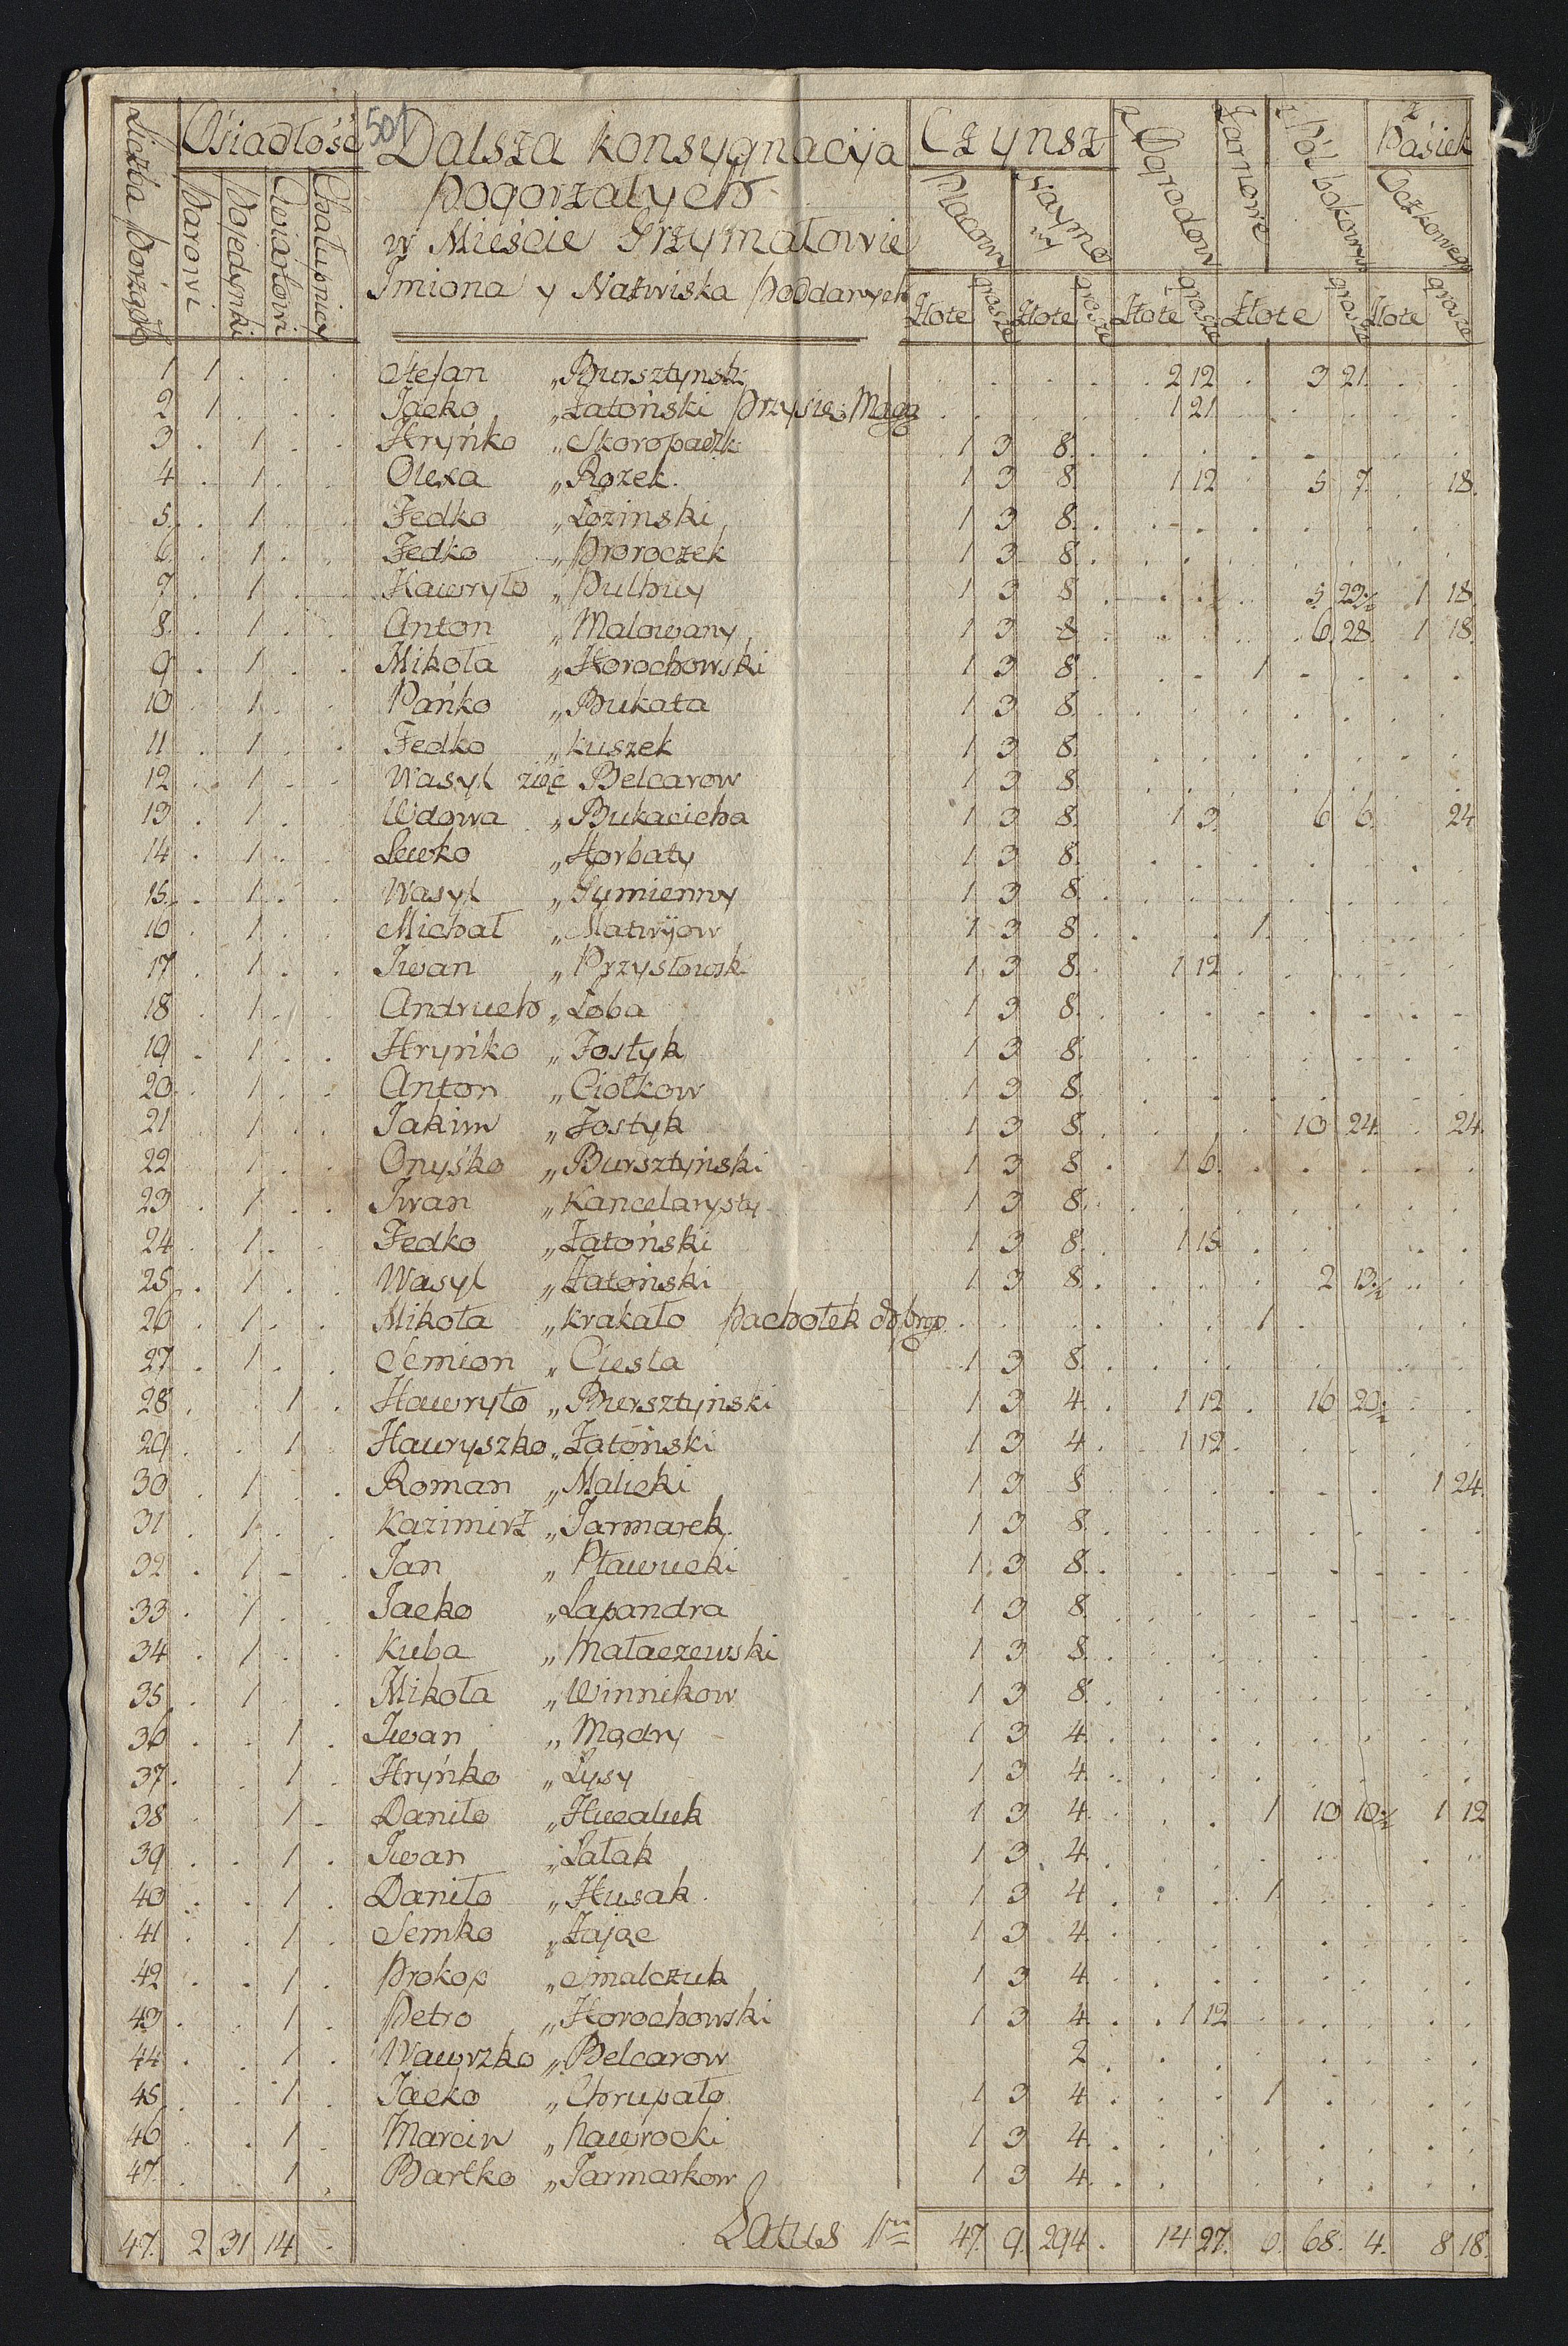 501
Liczba Porządk
Osiadłość
Parowi
Pojedynki
Cwiartowi
Chałupnicy
Dalsza konsygnacyja
Pogorzałych
w Mieście Grzymałowie
Imiona y Natwiska Poddanych
Czynsz
Placowy
Z Ogrodow
Żarnowe
z Pól bokowych
z Pasiek
Oczkowego
Złote grosze Złote grosze Złote grosze Złote grosze Złote grosze
1 1 . . . Stefan „ Bursztynski . . . . . 2 12 . 3 21 . .
2 1 . . . Jacko „ Zatoński Przysięż: Mago . . . . 1 21 . . . . .
3 . 1 . . Hryńko „ Skoropadzk 1 3 8 . . . . . . . .
4 . 1 . . Olexa „ Rozek. 1 3 8. 1 12 . 5 7. . 18.
5. . 1 . . Fedko „ Łozinski 1 3 8. . . . . . . .
6. . 1 . . Fedko „ Proroczek 1 3 8. . . . . . . .
7 . 1 . . Hawryło „ Pulhuy 1 3 8 . . . . 5 23½ 1 18.
8. . 1 . . Anton „ Malowany 1 3 8 . . . . 6 28. 1 18.
9 . 1 . . Mikoła „ Horochowski 1 3 8. . . 1 . . . .
10 . 1 . . Pańko „ Bukata 1 3 8. . . . . . . .
11 . 1 . . Fedko „ Kuszek 1 3 8. . . . . . . .
12 . 1 . . Wasyl zięć Belcarow 1 3 8 . . . . . . .
13 . 1 . . Wdowa „ Bukacicha 1 3 8. 1 3. 6 6. 24
14 . 1 . . Lewko „ Horbaty 1 3 8. . . . . . . .
15. . 1 . . Wasyl „ Sumienny 1 3 8. . . . . . . .
16 . 1 . . Michał „ Matwijow 1 3 8 . . . 1. . . . .
17 . 1 . . Iwan „ Przysłowsk 1 3 8. 1 12 . . . . .
18 . 1 . . Andruch „ Łoba 1 3 8. . . . . . . .
19 . 1 . . Hryńko „ Fostyk 1 3 8. . . . . . . .
20. . 1 . . Anton „ Ciołkow 1 3 8. . . . . . . .
21 . 1 . . Jakim „ Fostyk 1 3 8. . . . 10 24. . 24.
22 . 1 . . Onyśko „ Bursztyński 1 3 8 . 1 6. . . . . .
23 . 1 . . Iwan „ Kancelarysty 1 3 8. . . . . . . .
24 . 1 . . Fedko „ Zatoński 1 3 8. 1 15 . . . . .
25 . 1 . . Wasyl „ Zatoński 1 3 8. . . . 2 13½ . .
26 . 1 . . Mikoła „ Krakało Pachołek . . . . . . 1 . . . .
27 . 1 . . Semion „ Ciesla 1 3 8. . . . . . . .
28 . . 1 . Hawryło „ Bursztyński 1 3 4. . 1 12 . 16 20½ . .
29 . . 1 . Hawryszko „ Zatoński 1 3 4. . 1 12. . . . . .
30 . 1 . . Roman „ Malicki 1 3 8 . . . . . . 1 24.
31 . 1 . . Kazimirz „ Jarmarek. 1 3 8. . . . . . . .
32 . 1 . . Jan „ Pławucki 1 3 8. . . . . . . .
33 . 1 . . Jacko „ Lapandra 1 3 8. . . . . . . .
34 . 1 . . Kuba „ Małaczewski 1 3 8. . . . . . . .
35 . 1 . . Mikoła „ Winnikow 1 3 8. . . . . . . .
36 . . 1 . Iwan „ Mądry 1 3 4. . . . . . . .
37. . . 1 . Hryńko „ Łysy 1 3 4. . . . . . . .
38 . . 1 . Daniło „ Hucaluk 1 3 4. . . 1 10 10½ 1 12
39 . . 1 . Iwan „ Łatak 1 3 4. . . . . . . .
40 . . 1 . Daniło „ Husak. 1 3 4 . . . 1. . . . .
41 . . 1 . Semko „ Zając 1 3 4. . . . . . . .
42 . . 1 . Prokop „ Smalczuk 1 3 4. . . . . . . .
43 . . 1 . Petro „ Horochowski 1 3 4 . . 1 12 . . . . .
44 . . 1 . Wawrzko „ Belcarow 2 . . . . . . . .
45 . . 1 . Jacko „ Chrupało 1 3 4 . . . 1 . . . .
46 . . 1 . Marcin „ Nawrocki 1 3 4. . . . . . . .
47. . . 1 . Bartko „ Jarmarkow 1 3 4. . . . . . . .
47. 2 31 14 . Latus 1mm 47. 9. 294. 14 27. 6 68. 4. 8 18.